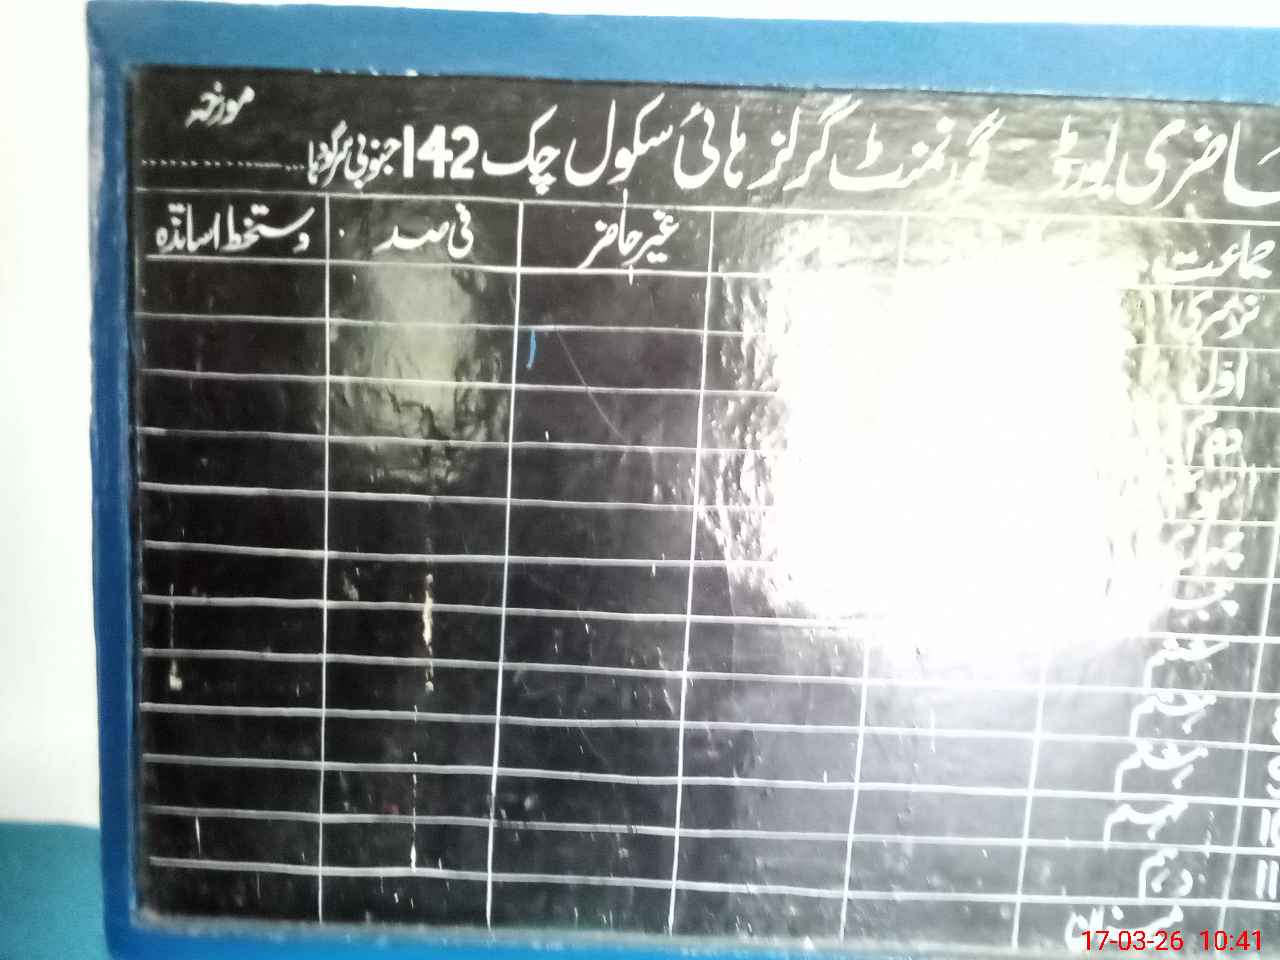 حاضری بورڈ گورنمنٹ گرلز ہائی سکول چک 142 جنوبی سرگودہا
مورخہ
جماعت غیر حاضر فی صد دستخط اساتذہ
نرسری
اوّل
دوم
سوم
چہارم
پنجم
ششم
ہفتم
ہشتم
نہم 10
دہم 11
میزان
17-03-26 10:41